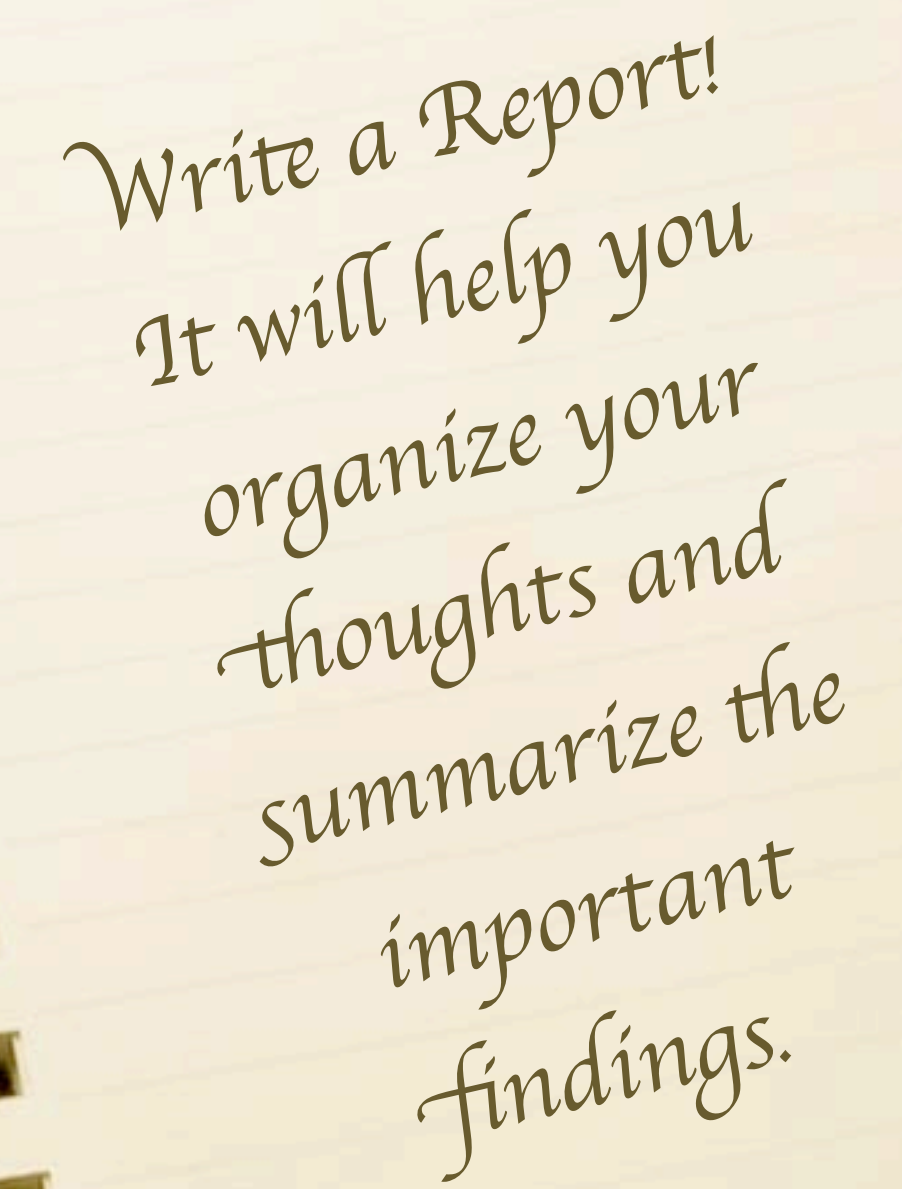 Write a Report!
It will help you
organize your
thoughts and
summarize the
important
findings.